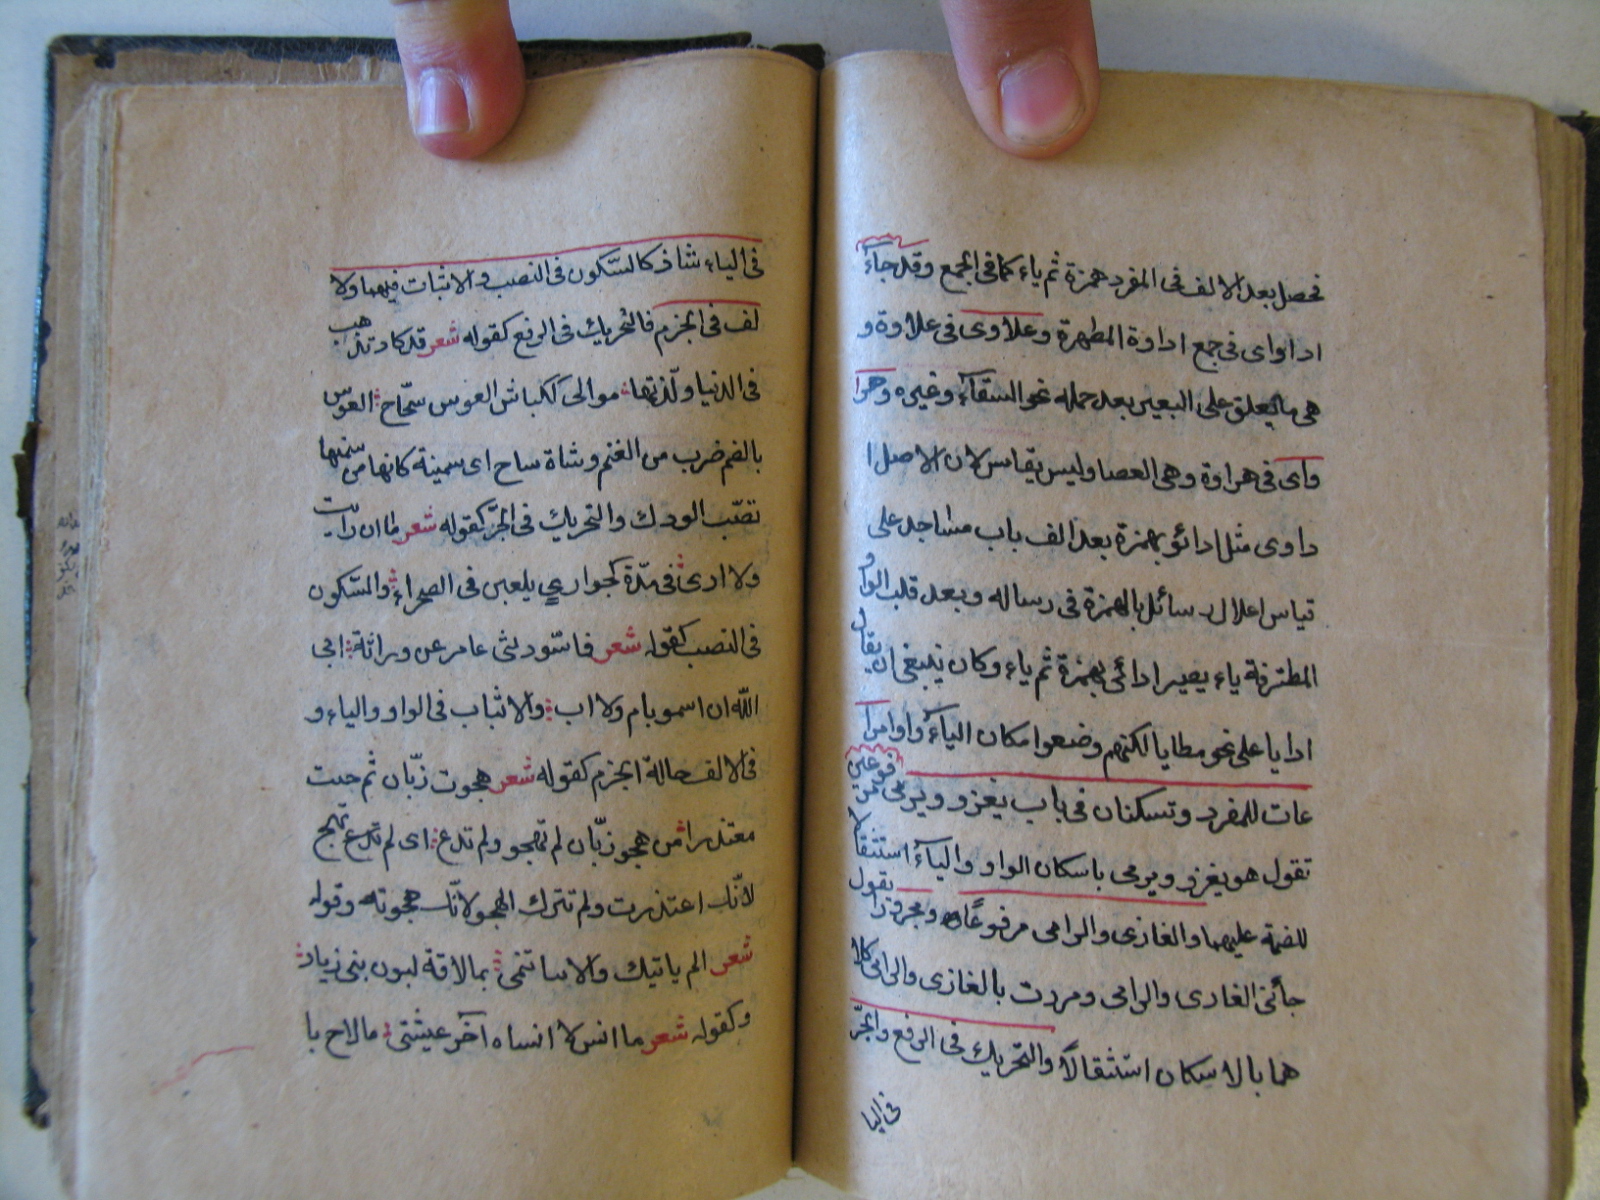 فحصل بعد الالف فى المفرد همزة ثم ياء كما فى الجمع وقد جاء
اداواى فى جمع اداوة المطهرة وعلاوى فى علاوة و
هى ما يعلق على البعير بعد حمله نحو السقاء وغيره وهرا
واى فى هراوة وهى العصا وليس بقياس لان الاصل ا
داوى مثل ادائو بهمزة بعد الف باب مساجد على
قياس اعلال رسائل بالهمزة فى رساله وبعد قلب الواو
المطترفة ياء يصير ادائى بهمزة ثم ياء وكان ينبغى ان يقال
ادايا على نحو مطايا لكنهم وضعوا مكان الياء واوا مرا
عات للمفرد وتسكنان فى باب يغزو ويرمى مرفوعين
تقول هو يغزو ويرمى باسكان الواو والياء استثقالا
للضمة عليهما والغازى والرامى مرفوعا ومجرورا تقول
جائنى الغازى والرامى ومررت بالغازى والرامى كلا
هما بالاسكان استثقالاً والتحريك فى الرفع والجرّ
فى اليا
فى الياء شاذ كالسّكون فى النصب والاثبات فيهما ولا
لف فى الجزم فالتحريك فى الرفع كقوله شعر قد كاد تذهب
فى الدنيا ولذتها موالى ككباش العوس سحّاح العوس
بالضم ضرب من الغنم وشاة ساح اى سمينة كانها من سمنها
تصّب الودك والتحريك فى الجرّ كقوله شعر ما ان رايت
ولا ارى فى مدّة كجوارىٍ يلعبن فى الصحراء والسّكون
فى النصب كقوله شعر فاسّودتنى عامر عن وراثة ابى
الله ان اسمو بام ولا اب والاثباب فى الواو والياء و
فى الالف حالة الجزم كقوله شعر هجوت زبّان ثم جيت
معتذرا من هجو زبّان لم تهجو ولم تدع اى لم تدع تهج
لانّك اعتذرت ولم تترك الهجو لانّك هجوته وقوله
شعر الم ياتيك والاساتنمى بما لاقة لبون بنى زياد
وكقوله شعر ما انس لا انساه آخر عيشتى ما لاح با